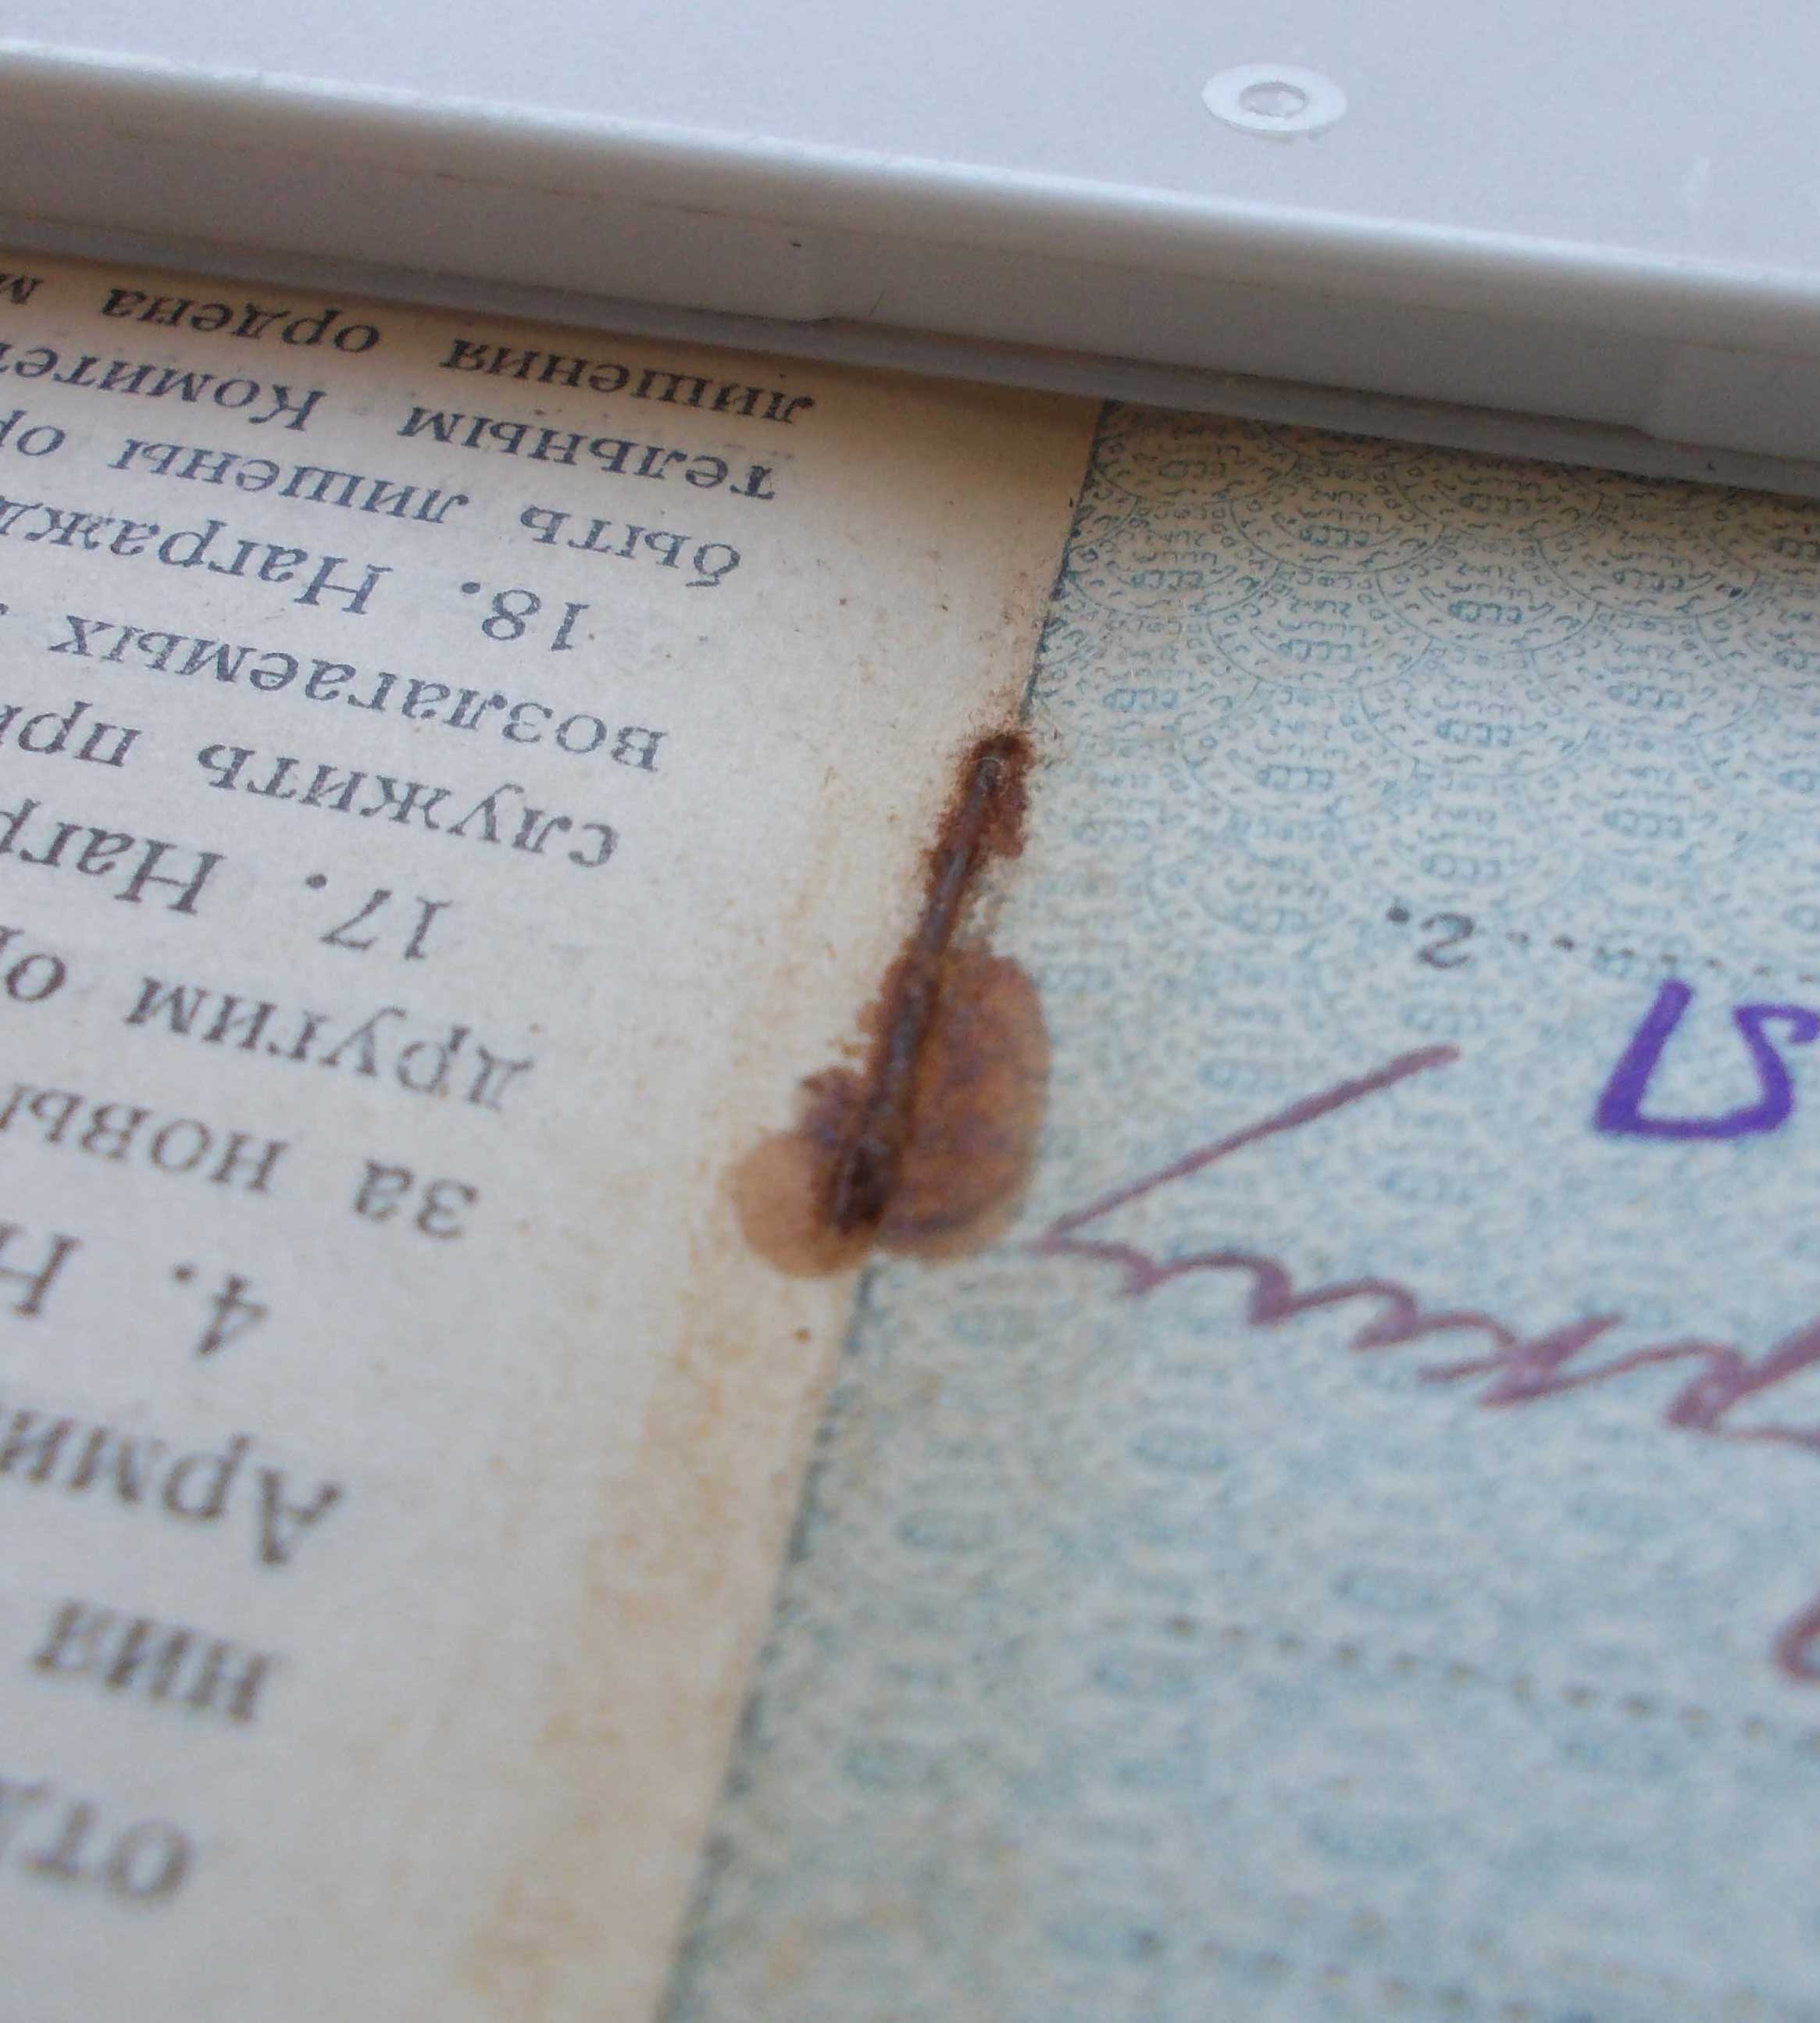 отд
ния
Арми
4. Н
за новы
другим о
17. Нагр
служить при
возлагаемых
18. Награжд
быть лишены ор
тельным Комитет
лишения ордена м
г.